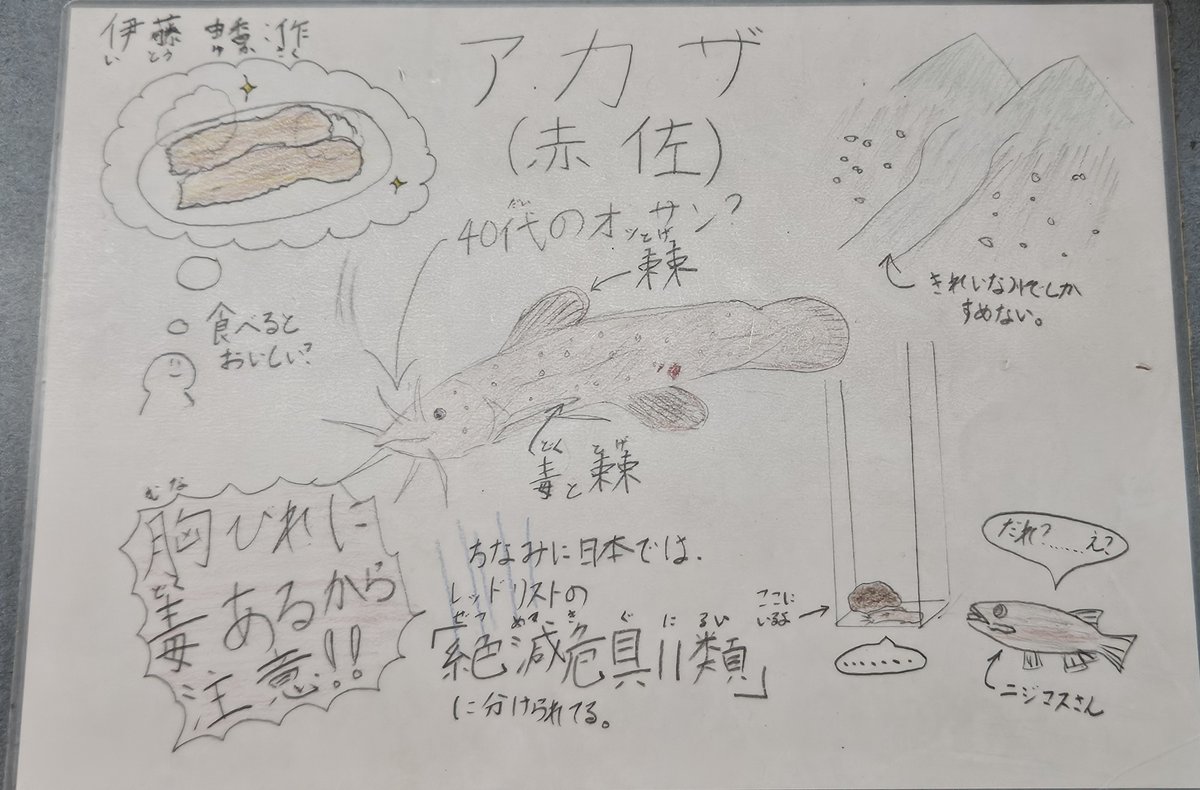 伊藤
いとう
アカザ
(赤佐)
40代のオッサン?
だい
とげ
棘
食べると
おいしい?
きれいな川でしか
すめない。
どく とげ
毒と棘
むな
胸びれに
どく
毒あるから
注意!!
ちなみに日本では、
レッドリストの
ぜつ めつ き ぐ に るい
「絶滅危具II類」
に分けられてる。
ここに
いるよ
……
だれ?……え?
ニジマスさん